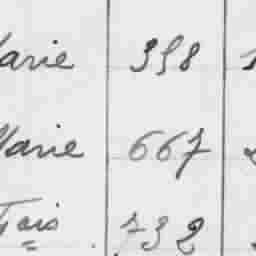 Marie 358
Marie 667
Fois 732